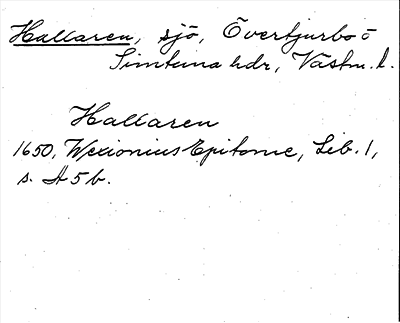 Hallaren, sjö, Övertjurbo ö
Simtuna hdr, Västm. l.
Hallaren
1650, Wexionius Epitome, Lib. 1,
s. A 5 b.